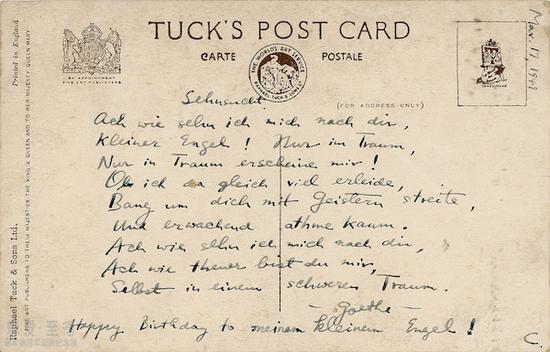 TUCK'S POST CARD
CARTE POSTALE
BY APPOINTMENT
FINE ART PUBLISHERS
THE WORLD'S ART SERVICE
RAPHAEL TUCK & SONS LTD
(FOR ADDRESS ONLY)
TRADE MARK
Mar. 17,
Printed in England
Raphael Tuck & Sons Ltd.
FINE ART PUBLISHERS TO THEIR MAJESTIES THE KING & QUEEN AND TO HER MAJESTY QUEEN MARY
Sehnsucht.
Ach wie sehn ich mich nach dir,
Kleiner Engel! Nur im Traum,
Nur in Traum erscheine mir!
Ob ich da gleich viel erleide,
Bang um dich mit Geistern streite,
Und erwachend athme kaum.
Ach wie sehn ich mich nach dir,
Ach wie theuer bist du mir,
Selbst in einem schweren Traum.
— Goethe —
Happy Birthday to meinem kleinem Engel!
C.